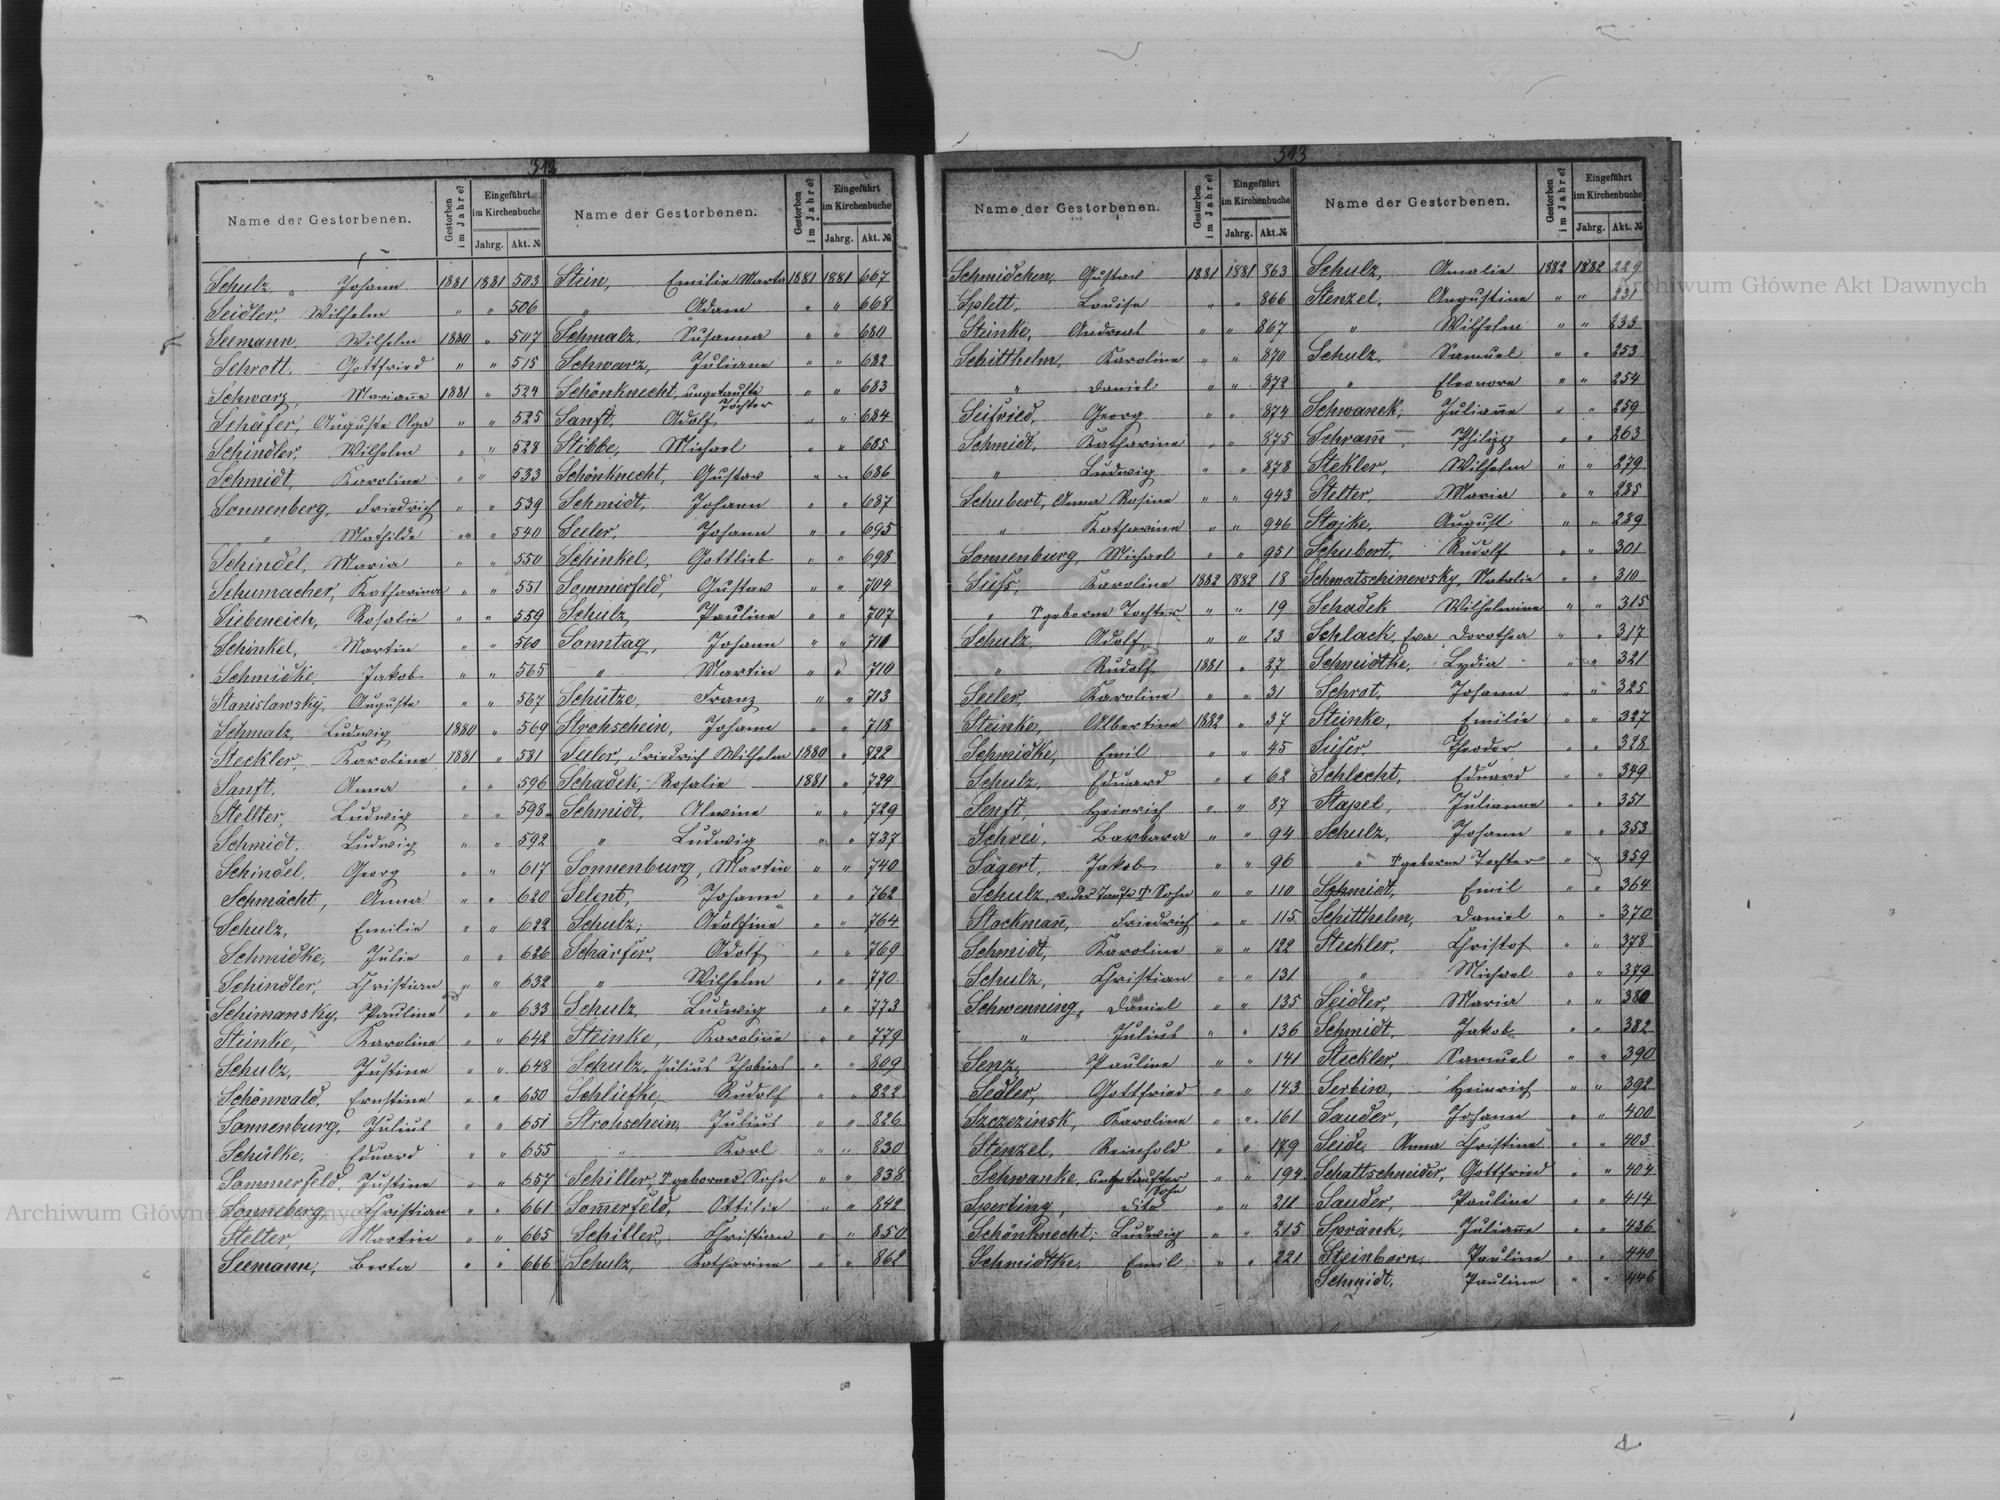 512
Name der Gestorbenen. Gestorben im Jahre? Eingeführt im Kirchenbuche Jahrg. Akt. №
Schulz, Johann 1881 1881 503
Seidler, Wilhelm " " 506
Seemann, Wilhelm 1880 " 507
Schrott, Gottfried " " 515
Schwarz, Marianne 1881 " 524
Schäfer, Auguste Olga " " 525
Schindler, Wilhelm " " 528
Schmidt, Karoline " " 533
Sonnenberg, Friedrich " " 539
" Mathilde " " 540
Schindel, Maria " " 550
Schumacher, Katharina " " 551
Siebeneich, Rosalie " " 559
Schinkel, Martin " " 560
Schmidke, Jakob " " 565
Stanislawsky, Auguste " " 567
Schmalz, Ludwig 1880 " 569
Steckler, Karoline 1881 " 581
Sanft, Anna " " 596
Stellter, Ludwig " " 598
Schmidt, Ludwig " " 592
Schindel, Georg " " 617
Schmächt, Anna " " 620
Schulz, Emilie " " 622
Schmidke, Julie " " 626
Schindler, Christian " " 632
Schimansky, Pauline " " 633
Steinke, Karoline " " 642
Schulz, Justine " " 648
Schönwald, Ernstine " " 650
Sonnenburg, Julius " " 651
Schülke, Eduard " " 655
Sommerfeld, Justine " " 657
Sonneberg, Christian " " 661
Stelter, Martin " " 665
Seemann, Berta " " 666
Name der Gestorbenen. Gestorben im Jahre? Eingeführt im Kirchenbuche Jahrg. Akt. №
Stein, Emilie Marta 1881 1881 667
" Adam " " 668
Schmalz, Susanna " " 680
Schwarz, Juliane " " 682
Schönknecht, ungetaufte Tochter " " 683
Sanft, Adolf " " 684
Stibbe, Michael " " 685
Schönknecht, Gustav " " 686
Schmidt, Johann " " 687
Seeler, Johann " " 695
Schinkel, Gottlieb " " 698
Sommerfeld, Gustav " " 704
Schulz, Pauline " " 707
Sonntag, Johann " " 711
" Martin " " 710
Schütze, Franz " " 713
Strohschein, Johann " " 718
Seeler, Friedrich Wilhelm 1880 " 722
Schadek, Rosalie 1881 " 724
Schmidt, Alwine " " 729
" Ludwig " " 737
Sonnenburg, Martin " " 740
Selent, Johann " " 762
Schulz, Adolfine " " 764
Schärfer, Adolf " " 769
" Wilhelm " " 770
Schulz, Ludwig " " 773
Steinke, Karoline " " 779
Schulz, Julius Thobias " " 809
Schliefke, Rudolf " " 822
Strohschein, Julius " " 826
" Karl " " 830
Schiller, † gebornes Sohn " " 838
Som̅erfeld, Ottilie " " 842
Schiller, Christian " " 850
Schulz, Katharine " " 861
513
Name der Gestorbenen. Gestorben im Jahre? Eingeführt im Kirchenbuche Jahrg. Akt. №
Schmidchen, Gustav 1881 1881 863
Splett, Louise " " 866
Steinke, Andreas " " 867
Schitthelm, Karoline " " 870
" Daniel " " 872
Seifried, Georg " " 874
Schmidt, Katharine " " 875
" Ludwig " " 878
Schubert, Anna Rosine " " 943
" Katharine " " 946
Sonnenburg, Michael " " 951
Süss, Karoline 1882 1882 18
" † geborne Tochter " " 19
Schulz, Adolf " " 23
" Rudolf 1881 " 27
Seeler, Karoline " " 31
Steinke, Albertine 1882 " 37
Schmidke, Emil " " 45
Schulz, Eduard " " 62
Senft, Heinrich " " 87
Schrei, Barbara " " 94
Sägert, Jakob " " 96
Schulz, † Sohn " " 110
Stockman̅, Friedrich " " 115
Schmidt, Karoline " " 122
Schulz, Christian " " 131
Schwenning, Daniel " " 135
" Julius " " 136
Senz, Pauline " " 141
Sedler, Gottfried " " 143
Szczezinsk, Karoline " " 161
Stenzel, Reinhold " " 179
Schwanke, ungetaufter Sohn 194
Sperling, dito " " 211
Schönknecht, Ludwig " " 215
Schmidtke, Emil " " 221
Name der Gestorbenen. Gestorben im Jahre? Eingeführt im Kirchenbuche Jahrg. Akt. №
Schulz, Amalie 1882 1882 229
Stenzel, Augustine " " 231
" Wilhelm " " 233
Schulz, Samuel " " 253
" Eleonore " " 254
Schwanek, Julian̅e " " 259
Schram̅, Philipp " " 263
Stekler, Wilhelm " " 279
Stelter, Maria " " 285
Stojke, August " " 289
Schubert, Rudolf " " 301
Schwatschinewsky, Natalie " " 310
Schadek Wilhelmine " " 315
Schlack, Eva Dorothea " " 317
Schmidtke, Lydia " " 321
Schrot, Johann " " 325
Steinke, Emilie " " 327
Süser, Theodor " " 328
Schlecht, Eduard " " 349
Stapel, Julianna " " 351
Schulz, Johann " " 353
" † geborne Tochter " " 359
Schmidt, Emil " " 364
Schitthelm, Daniel " " 370
Steckler, Christof " " 378
" Michael " " 379
Seidler, Maria " " 380
Schmidt, Jakob " " 382
Steckler, Samuel " " 390
Serbin, Heinrich " " 392
Sauder, Johann " " 400
Seide, Anna Christine " " 403
Schattschneider, Gottfried " " 404
Sauder, Pauline " " 414
Spränk, Julian̅e " " 436
Steinborn, Pauline " " 440
Schmidt, Pauline " " 446
Archiwum Główne Akt Dawnych
Archiwum Główne Akt Dawnych